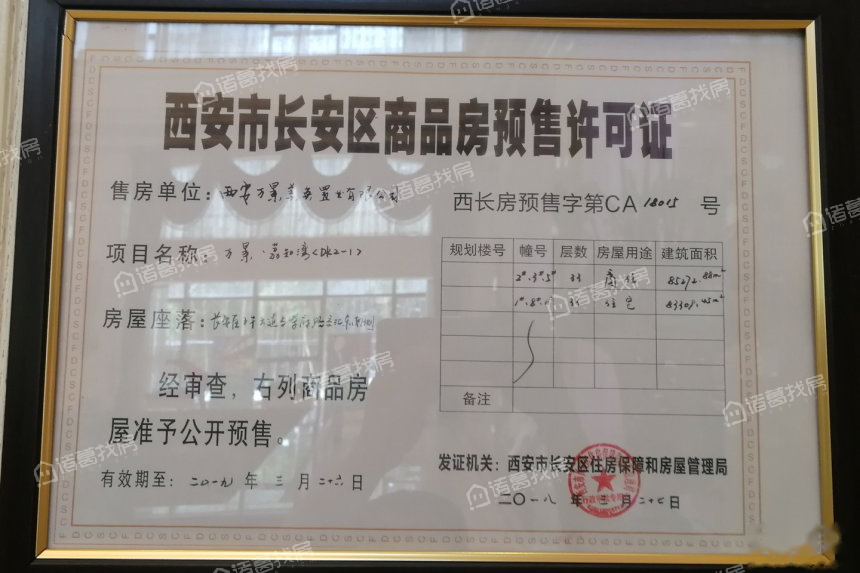 西安市长安区商品房预售许可证
售房单位：西安万景美英置业有限公司
西长房预售字第CA 18015 号
项目名称：万景·荔知湾(DK2-1)
规划楼号 幢号 层数 房屋用途 建筑面积
2#.3#.5# 33 85272.88m²
33 住宅 83309.45m²
备注
房屋座落：长安区
经审查，右列商品房
屋准予公开预售。
有效期至：二〇一九 年 三 月 二十六 日
发证机关：西安市长安区住房保障和房屋管理局
二〇一八 年 三 月 二十七 日
诸葛找房